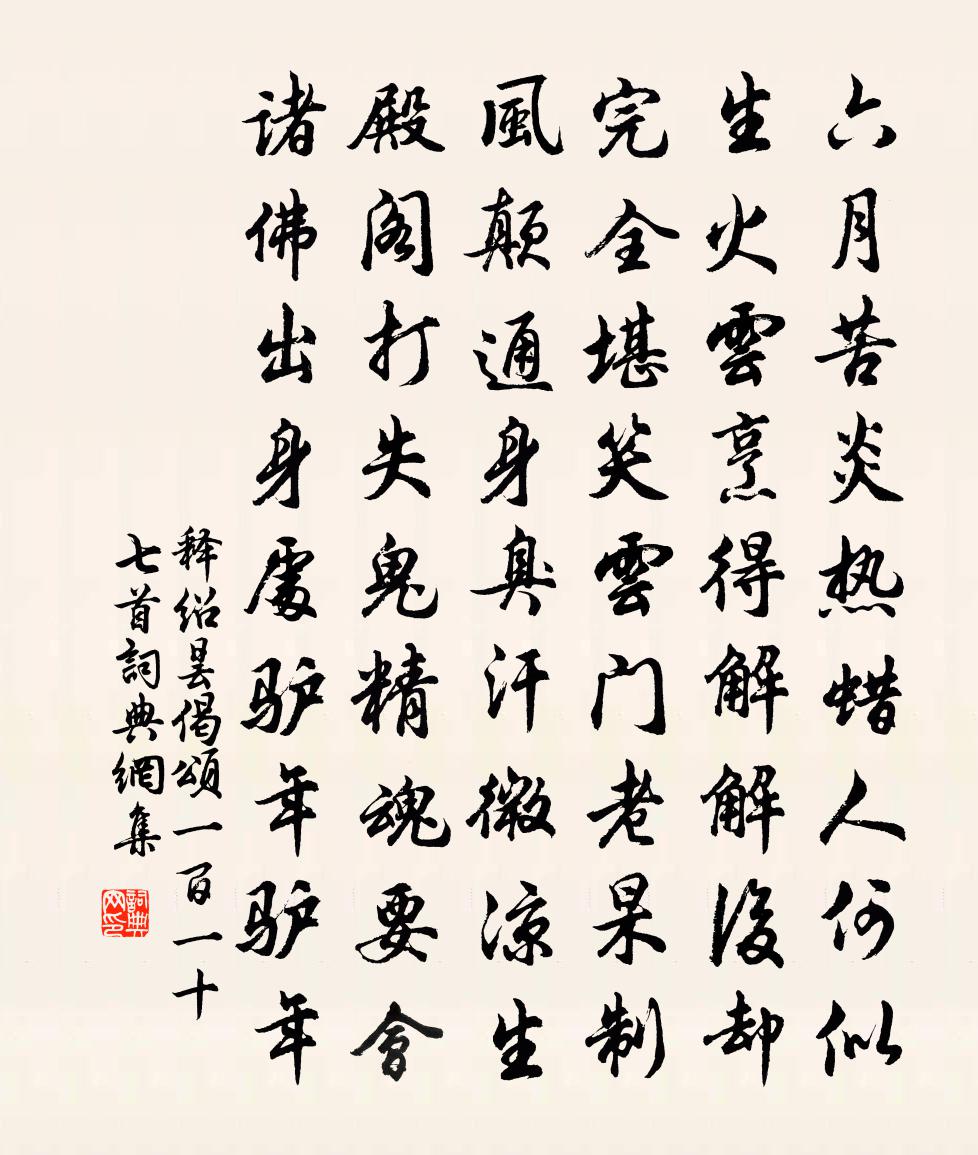 六月苦炎热蜡人何似
生火雲烹得解解後却
完全堪笑雲门老杲制
風颠通身臭汗微凉生
殿阁打失鬼精魂要會
诸佛出身處驴年驴年
释绍昙偈頌一百一十
七首詞典網集
詞典网印